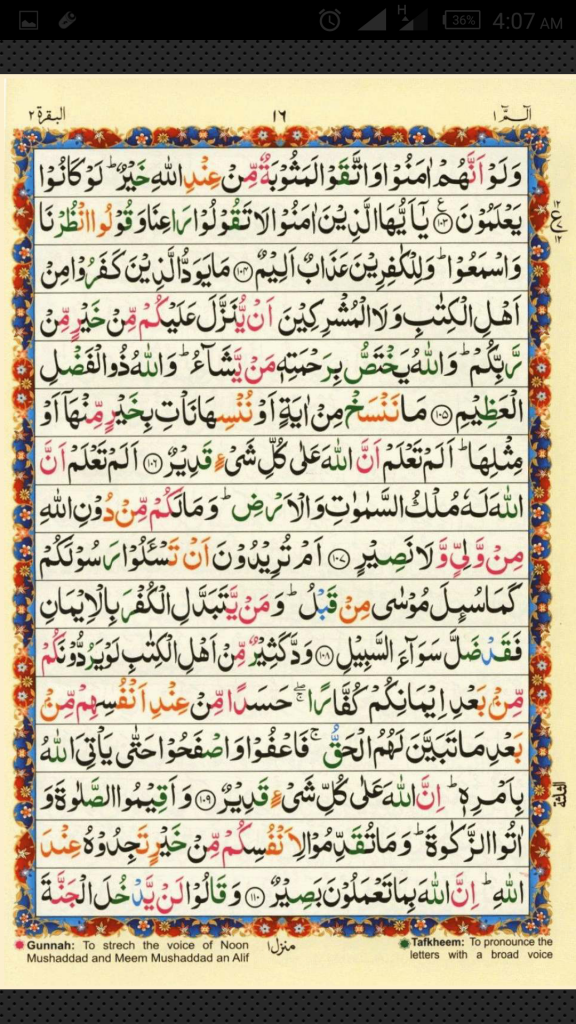 H
36%
4:07 AM
البقرة ٢
١٦
الٓمّٓ ١
وَلَوْ اَنَّهُمْ اٰمَنُوْا وَاتَّقَوْا لَمَثُوْبَةٌ مِّنْ عِنْدِ اللّٰهِ خَيْرٌ ؕ لَوْ كَانُوْا
يَعْلَمُوْنَ ﴿۱۰۳﴾ يٰۤاَيُّهَا الَّذِيْنَ اٰمَنُوْا لَا تَقُوْلُوْا رَاعِنَا وَقُوْلُوا انْظُرْنَا
وَاسْمَعُوْا ؕ وَلِلْكٰفِرِيْنَ عَذَابٌ اَلِيْمٌ ﴿۱۰۴﴾ مَا يَوَدُّ الَّذِيْنَ كَفَرُوْا مِنْ
اَهْلِ الْكِتٰبِ وَلَا الْمُشْرِكِيْنَ اَنْ يُّنَزَّلَ عَلَيْكُمْ مِّنْ خَيْرٍ مِّنْ
رَّبِّكُمْ ؕ وَاللّٰهُ يَخْتَصُّ بِرَحْمَتِهٖ مَنْ يَّشَآءُ ؕ وَاللّٰهُ ذُو الْفَضْلِ
الْعَظِيْمِ ﴿۱۰۵﴾ مَا نَنْسَخْ مِنْ اٰيَةٍ اَوْ نُنْسِهَا نَاْتِ بِخَيْرٍ مِّنْهَاۤ اَوْ
مِثْلِهَا ؕ اَلَمْ تَعْلَمْ اَنَّ اللّٰهَ عَلٰى كُلِّ شَىْءٍ قَدِيْرٌ ﴿۱۰۶﴾ اَلَمْ تَعْلَمْ اَنَّ
اللّٰهَ لَهٗ مُلْكُ السَّمٰوٰتِ وَالْاَرْضِ ؕ وَمَا لَكُمْ مِّنْ دُوْنِ اللّٰهِ
مِنْ وَّلِىٍّ وَّلَا نَصِيْرٍ ﴿۱۰۷﴾ اَمْ تُرِيْدُوْنَ اَنْ تَسْـَٔلُوْا رَسُوْلَكُمْ
كَمَا سُىِٕلَ مُوْسٰى مِنْ قَبْلُ ؕ وَمَنْ يَّتَبَدَّلِ الْكُفْرَ بِالْاِيْمَانِ
فَقَدْ ضَلَّ سَوَآءَ السَّبِيْلِ ﴿۱۰۸﴾ وَدَّ كَثِيْرٌ مِّنْ اَهْلِ الْكِتٰبِ لَوْ يَرُدُّوْنَكُمْ
مِّنْۢ بَعْدِ اِيْمَانِكُمْ كُفَّارًا ۚۖ حَسَدًا مِّنْ عِنْدِ اَنْفُسِهِمْ مِّنْۢ
بَعْدِ مَا تَبَيَّنَ لَهُمُ الْحَقُّ ۚ فَاعْفُوْا وَاصْفَحُوْا حَتّٰى يَاْتِىَ اللّٰهُ
بِاَمْرِهٖ ؕ اِنَّ اللّٰهَ عَلٰى كُلِّ شَىْءٍ قَدِيْرٌ ﴿۱۰۹﴾ وَاَقِيْمُوا الصَّلٰوةَ وَ
اٰتُوا الزَّكٰوةَ ؕ وَمَا تُقَدِّمُوْا لِاَنْفُسِكُمْ مِّنْ خَيْرٍ تَجِدُوْهُ عِنْدَ
اللّٰهِ ؕ اِنَّ اللّٰهَ بِمَا تَعْمَلُوْنَ بَصِيْرٌ ﴿۱۱۰﴾ وَقَالُوْا لَنْ يَّدْخُلَ الْجَنَّةَ
۱۲
ع
۱۲
الثلثة
Gunnah: To strech the voice of Noon
Mushaddad and Meem Mushaddad an Alif
منزل ١
Tafkheem: To pronounce the
letters with a broad voice